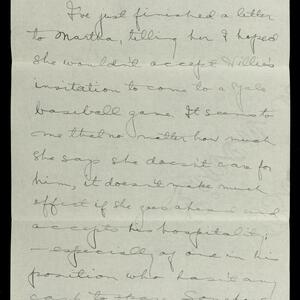 I've just finished a letter
to Martha, telling her I hoped
she wouldn't accept Willie's
invitation to come to a Yale
baseball game. It seems to
me that no matter how much
she says she doesn't care for
him, it doesn't make much
effect if she goes ahead and
accepts his hospitality;
- especially of one in his
position who hasn't any